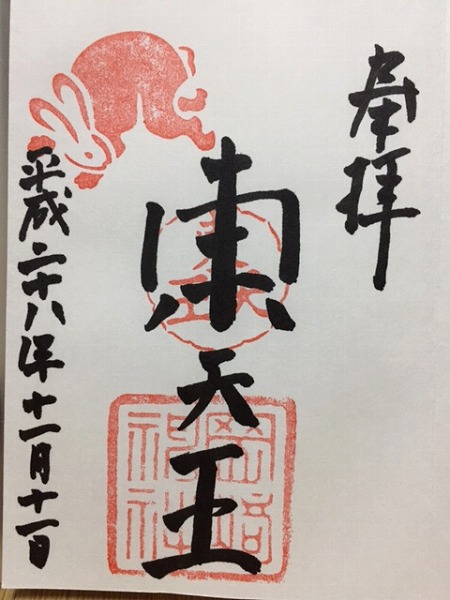 奉拝
東天王
岡崎神社
平成二十八年十一月十一日